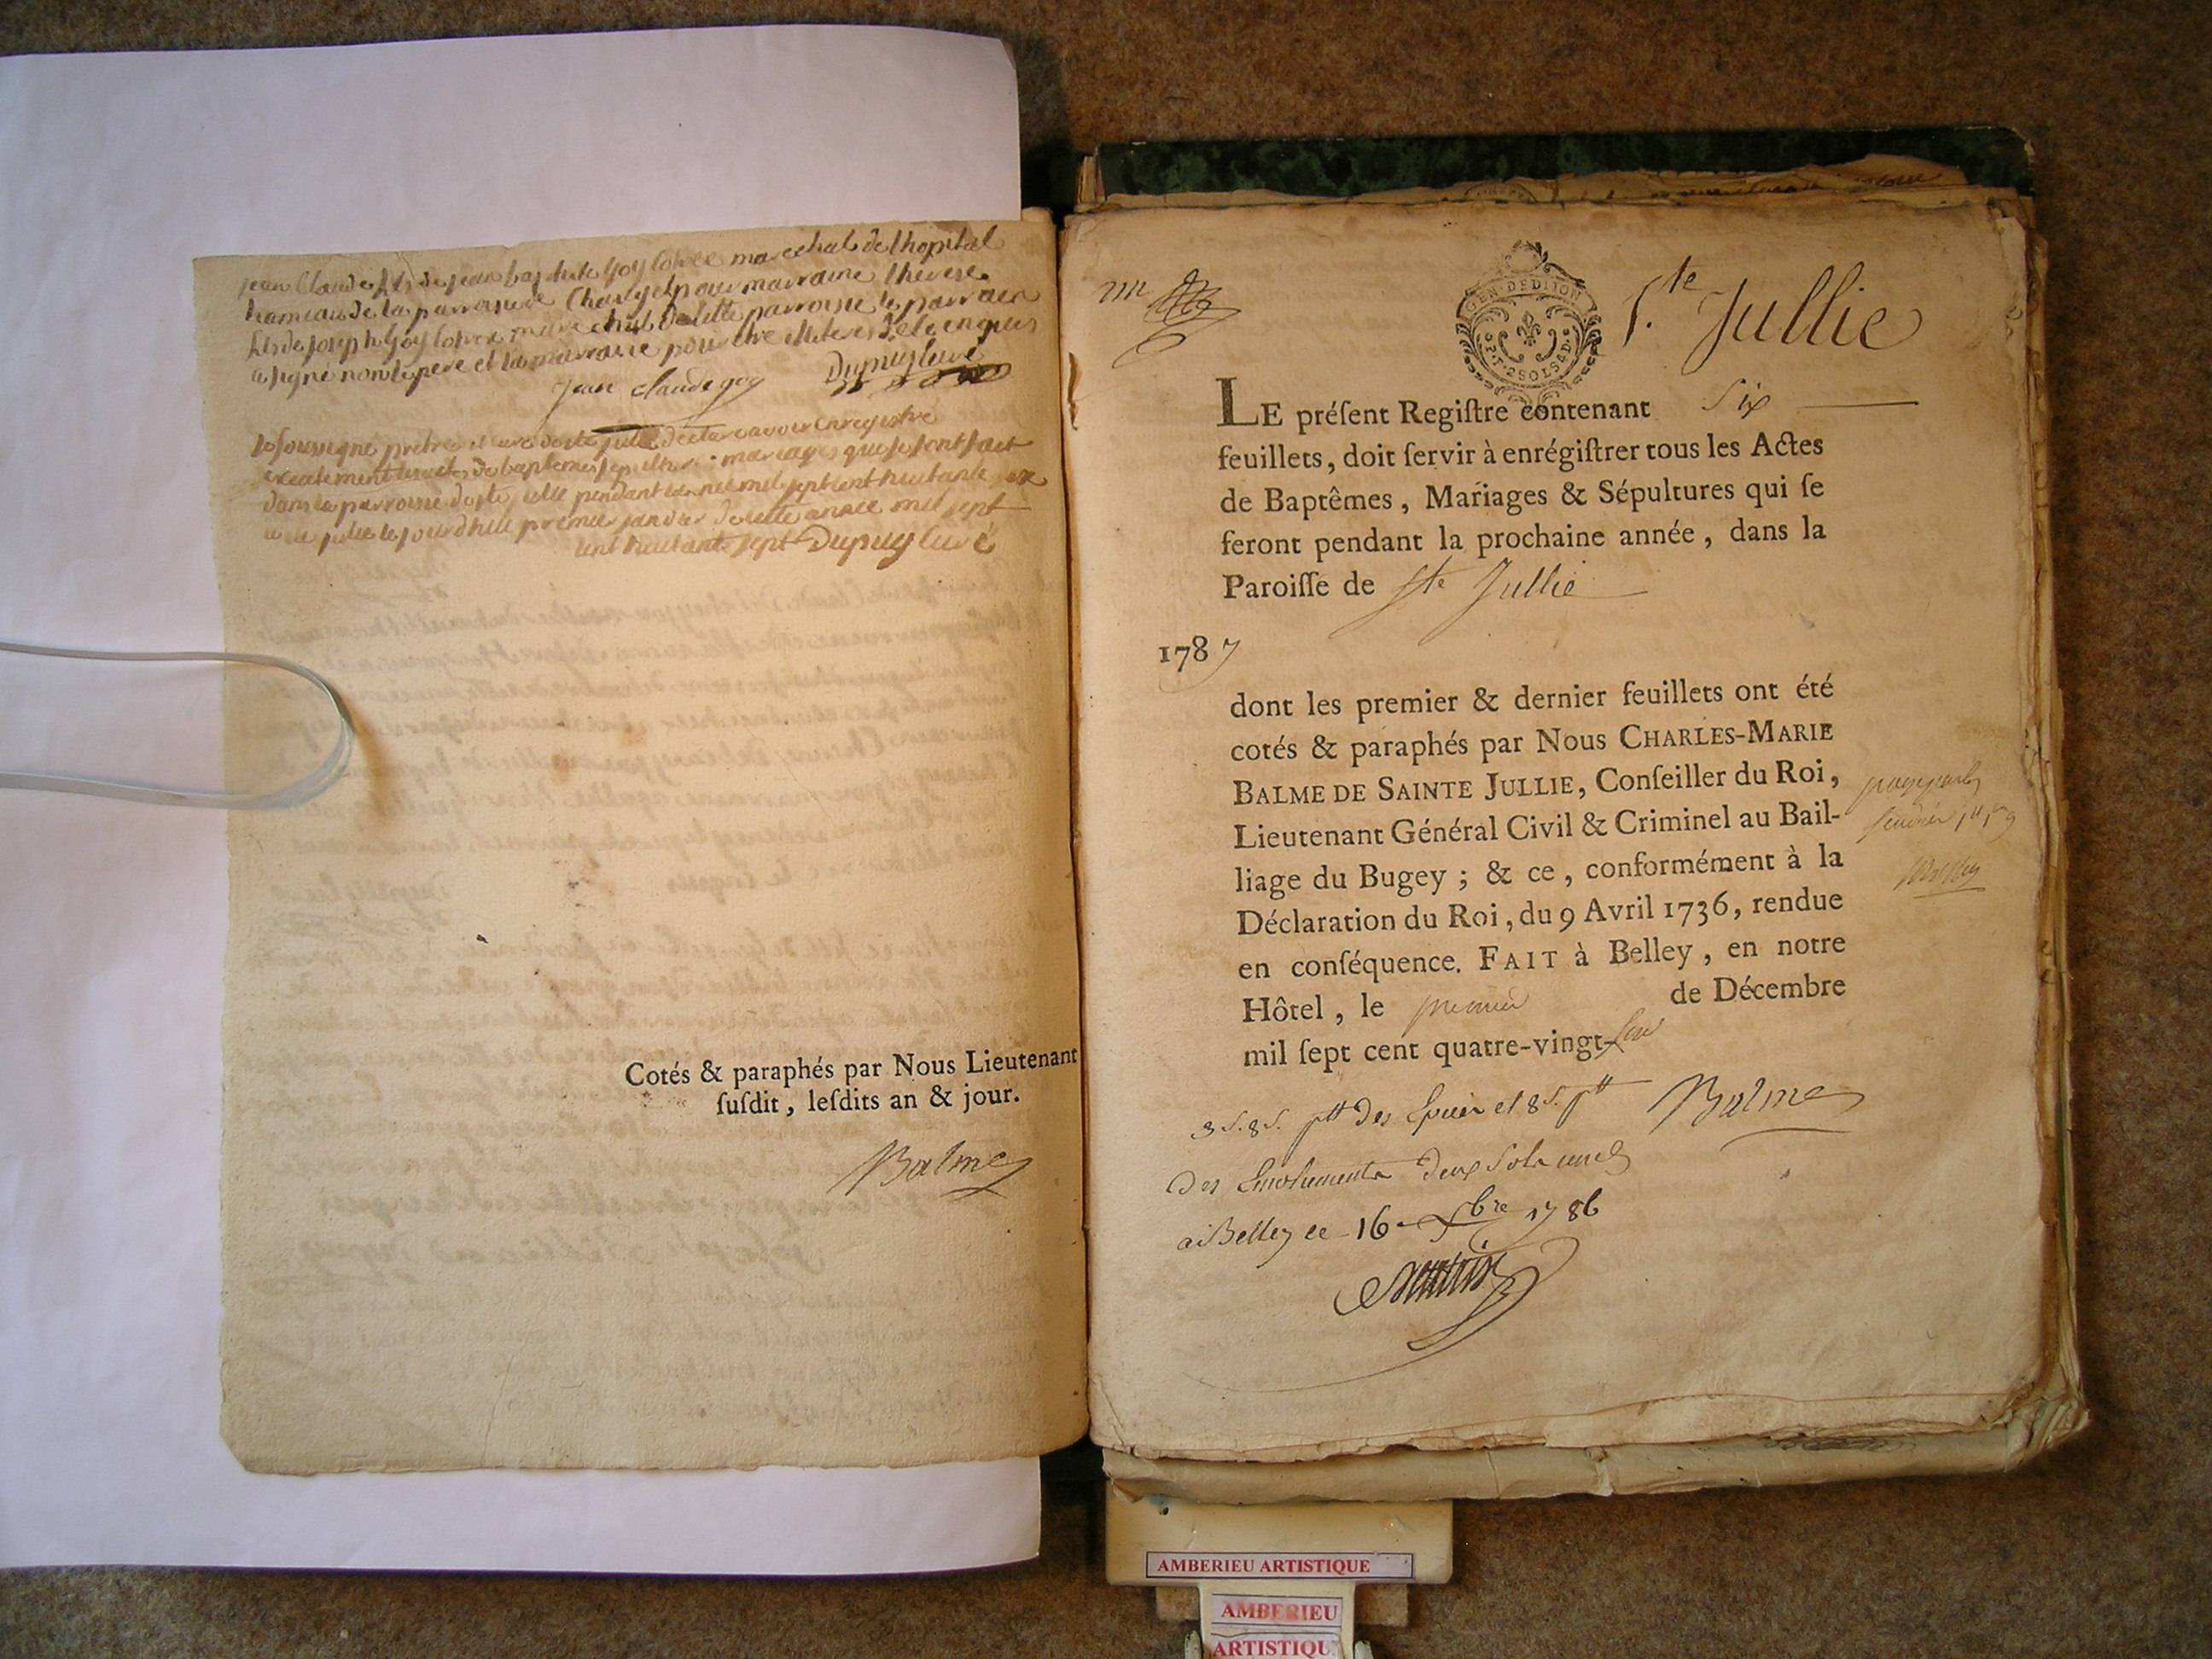 jean Claude fils de jean baptiste goy cohee marechal de lhopital
hameau de la parroisse de Charizet pour marraine therese
fils de joseph goy marechal de cette parroisse le parrain
a signé non le pere et la marraine pour etre illiteres de ce enquis
jean claude goy Dupuy curé
Je soussigné pretre et curé de ste julie declare avoir enregistré
exactement les actes de baptemes sepultures mariages qui se sont fait
dans la parroisse de ste julie pendant mil sept cent huitante six
a ste julie le jourdhui premier janvier de cette année mil sept
cent huitante sept Dupuy curé
Cotés & paraphés par Nous Lieutenant
ſuſdit, leſdits an & jour.
Balme
GEN. DE DIJON
P. P. 2 SOLS 4 D.
S.te Jullie
LE préſent Regiſtre contenant Six
feuillets, doit ſervir à enrégiſtrer tous les Actes
de Baptêmes, Mariages & Sépultures qui ſe
feront pendant la prochaine année, dans la
Paroiſſe de Ste Jullie
1787
dont les premier & dernier feuillets ont été
cotés & paraphés par Nous CHARLES-MARIE
BALME DE SAINTE JULLIE, Conſeiller du Roi,
Lieutenant Général Civil & Criminel au Bail-
liage du Bugey ; & ce, conformément à la
Déclaration du Roi, du 9 Avril 1736, rendue
en conſéquence. FAIT à Belley, en notre
Hôtel, le premier de Décembre
mil ſept cent quatre-vingt-six
Balme
des Emoluments deux sols
a Belley ce 16 Xbre 1786
AMBERIEU ARTISTIQUE
AMBERIEU
ARTISTIQU